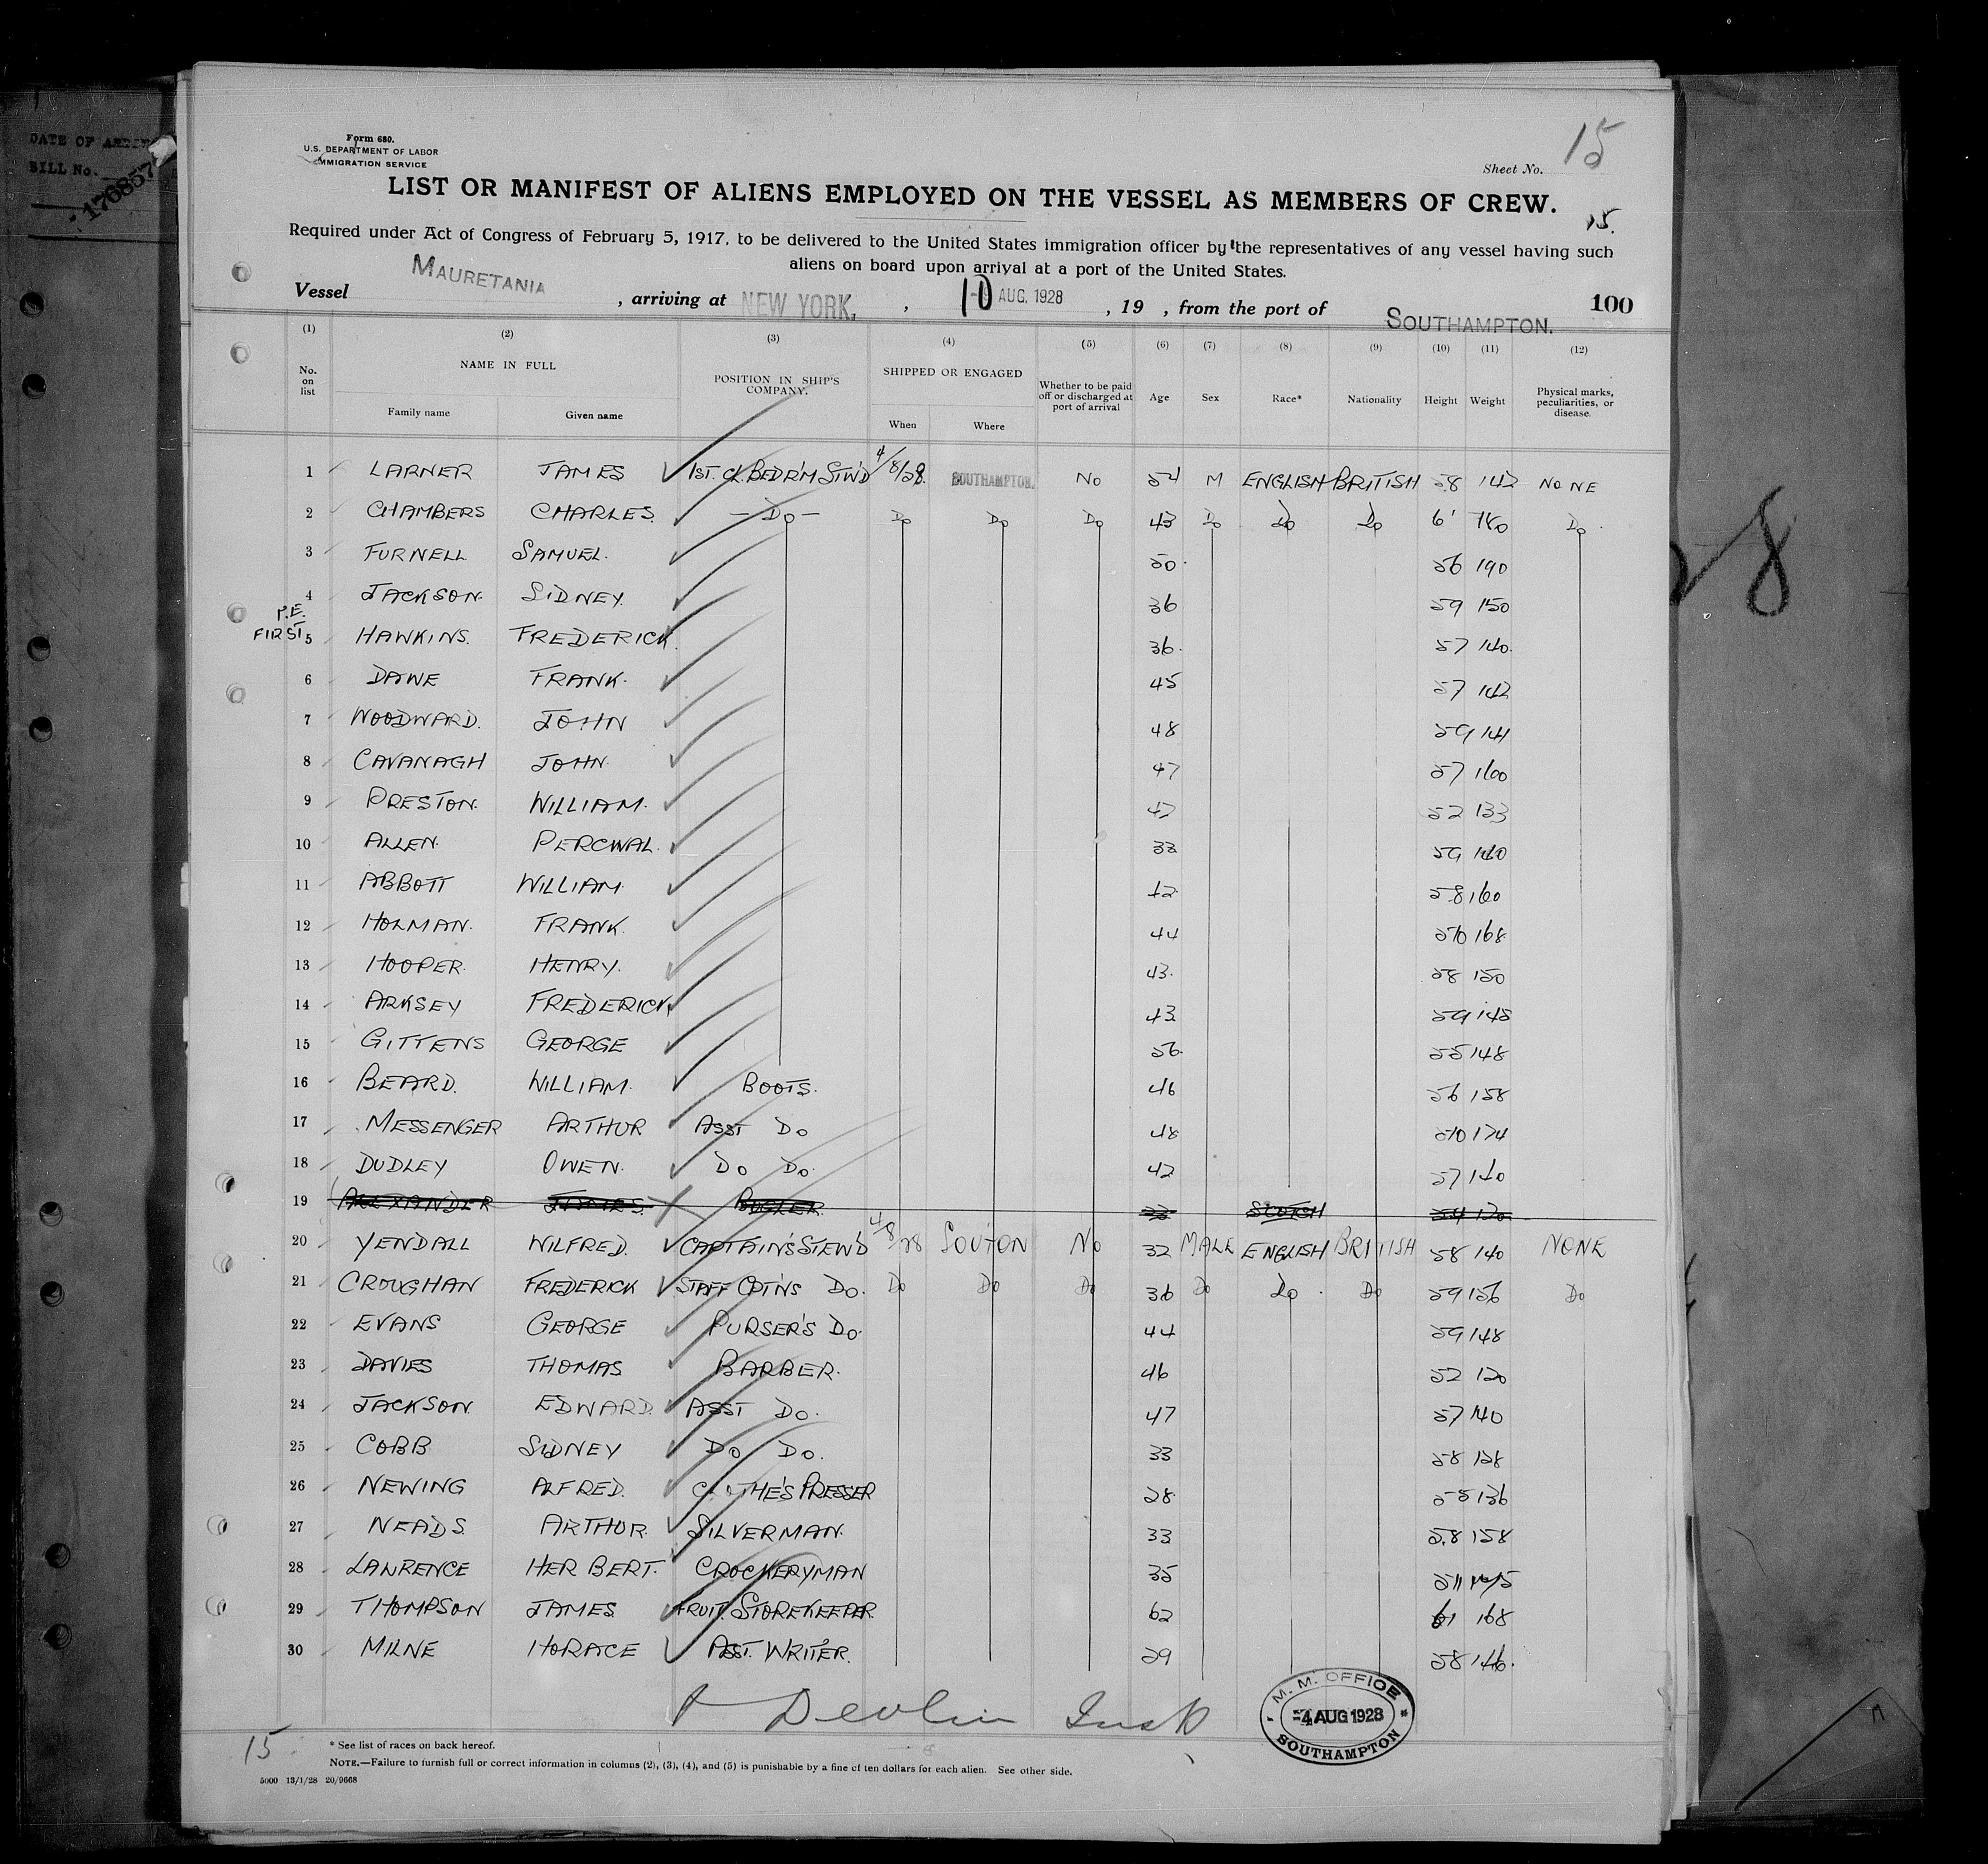 DATE OF
BILL No.
176857
Form 680.
U.S. DEPARTMENT OF LABOR
IMMIGRATION SERVICE
Sheet No. 15
LIST OR MANIFEST OF ALIENS EMPLOYED ON THE VESSEL AS MEMBERS OF CREW.
15.
Required under Act of Congress of February 5, 1917, to be delivered to the United States immigration officer by the representatives of any vessel having such
aliens on board upon arrival at a port of the United States.
Vessel MAURETANIA , arriving at NEW YORK, , 10 AUG. 1928 , 19 , from the port of SOUTHAMPTON. 100
(1) (2) (3) (4) (5) (6) (7) (8) (9) (10) (11) (12)
No. on list NAME IN FULL Family name Given name POSITION IN SHIP'S COMPANY. SHIPPED OR ENGAGED When Where Whether to be paid off or discharged at port of arrival Age Sex Race* Nationality Height Weight Physical marks, peculiarities, or disease.
1 LARNER JAMES 1ST. CL. BEDR'M STW'D 4/8/28. SOUTHAMPTON. NO 54 M ENGLISH BRITISH 58 142 NONE
2 CHAMBERS CHARLES. - DO - DO DO DO 43 DO DO DO 6' 180 DO.
3 FURNELL SAMUEL. 50. 56 190
4 JACKSON. SIDNEY. 36 59 150
P.E. FIRST 5 HAWKINS. FREDERICK. 36. 57 140.
6 DAWE FRANK. 45 57 142
7 WOODWARD. JOHN 48 59 141
8 CAVANAGH JOHN. 47 57 160
9 PRESTON. WILLIAM. 47 52 133
10 ALLEN. PERCIVAL. 33 59 140
11 ABBOTT WILLIAM. 42. 58 160
12 HOLMAN. FRANK. 44 510 168
13 HOOPER. HENRY. 43. 58 150
14 ARKSEY FREDERICK. 43 59 148
15 GITTENS GEORGE 56. 55 148
16 BEARD. WILLIAM. BOOTS. 46 56 158
17 MESSENGER ARTHUR ASST DO 48 510 174
18 DUDLEY OWEN. DO DO. 42 57 140
19 ALEXANDER JAMES. BUGLER. SCOTCH 54 120
20 YENDALL WILFRED. CAPTAIN'S STEW'D 4/8/28 SOU'TON NO 32 MALE ENGLISH BRITISH 58 140 NONE
21 CROUGHAN FREDERICK STAFF CPT'NS DO. DO DO DO 36 DO DO. DO 59 156 DO
22 EVANS GEORGE PURSER'S DO. 44 59 148
23 DAVIES THOMAS BARBER. 46 52 120
24 JACKSON. EDWARD. ASST DO. 47 57 140
25 COBB SIDNEY DO DO. 33 58 128
26 NEWING ALFRED. CLOTHE'S PRESSER 28. 55 136
27 NEADS. ARTHUR. SILVERMAN. 33 5.8 158
28 LAWRENCE HERBERT. CROCKERYMAN 35 511
29 THOMPSON JAMES FRUIT. STOREKEEPER. 62 61 168
30 MILNE HORACE ASST. WRITER. 29 58 146.
Devlin
M. M. OFFICE
-4 AUG 1928
SOUTHAMPTON
15.
* See list of races on back hereof.
NOTE.—Failure to furnish full or correct information in columns (2), (3), (4), and (5) is punishable by a fine of ten dollars for each alien. See other side.
5000 13/1/28 20/9668
8